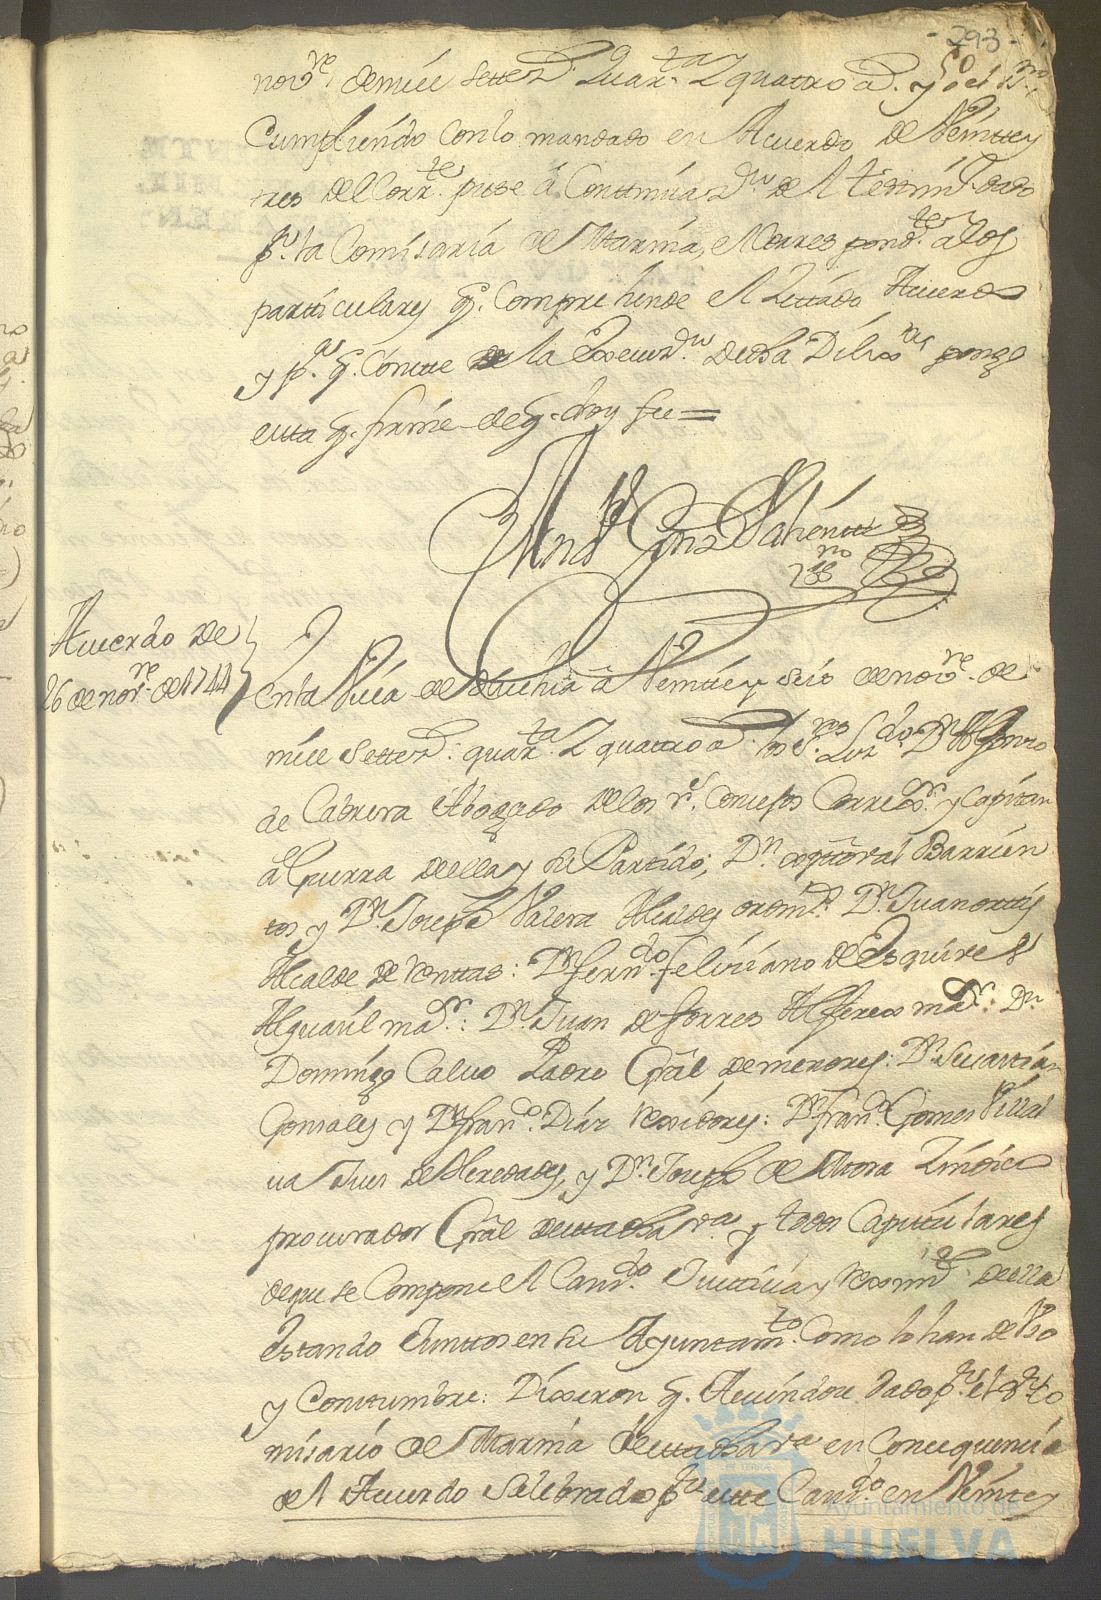 - 293 -
nov.re de mill Setez.s Quar.ta Z quatro a.s yo el Ss.no
Cumpliendo con lo mandado en Acuerdo de Veintte y
tres del Corr.te puse a Continuaz.on de el testim.o dado
p.r la Comisaria de Marina, el Correspond.te a los
particulares q. Comprehende el Zittado Acuerdo
y p.a q. Conste de la Execuz.on desta Dilix.as pongo
esta q. firme de q. doy fee =
Acuerdo de
26 de nov.re de 1744
En la Villa de Huelva a Veintte y seis de nov.re de
mill Setez.s quar.ta Z quatro a.s los S.res Liz.do D.n Alfonso
de Cabrera Abogado de los r.s Consejos Correx.or y Capitan
a Guerra de ella y su Partido; D.n Xptoval Barrien
tos y D.n Joseph Valera Alcaldes ordin.s D.n Juan ortis
Alcalde de Renttas: D.n fern.do feliciano de Esquivel
Alguasil ma.or: D.n Juan de Torres Alferes ma.or: D.n
Domingo Calvo Padre Gral de menores: D.n Sevastian
Gonsales y D.n fran.co Diaz Rexidores: D.n fran.co Gomes Villal
va Jues de Heredades, y D.n Joseph de Mora Zindico
procurador Gral desta dha v.a y todos Capitulares
de que se Compone el Cav.do Justicia y Reximi.to de ella
estando Juntos en su Ayuntam.to Como lo han de Vso
y Constumbre: Dixeron q. Haviendose dado p.r el S.r Co
misario de Marina de esta dha v.a en Consequencia
de el Acuerdo Selebrado p.r este Cav.do en Veintte y
Ayuntamiento de
HUELVA